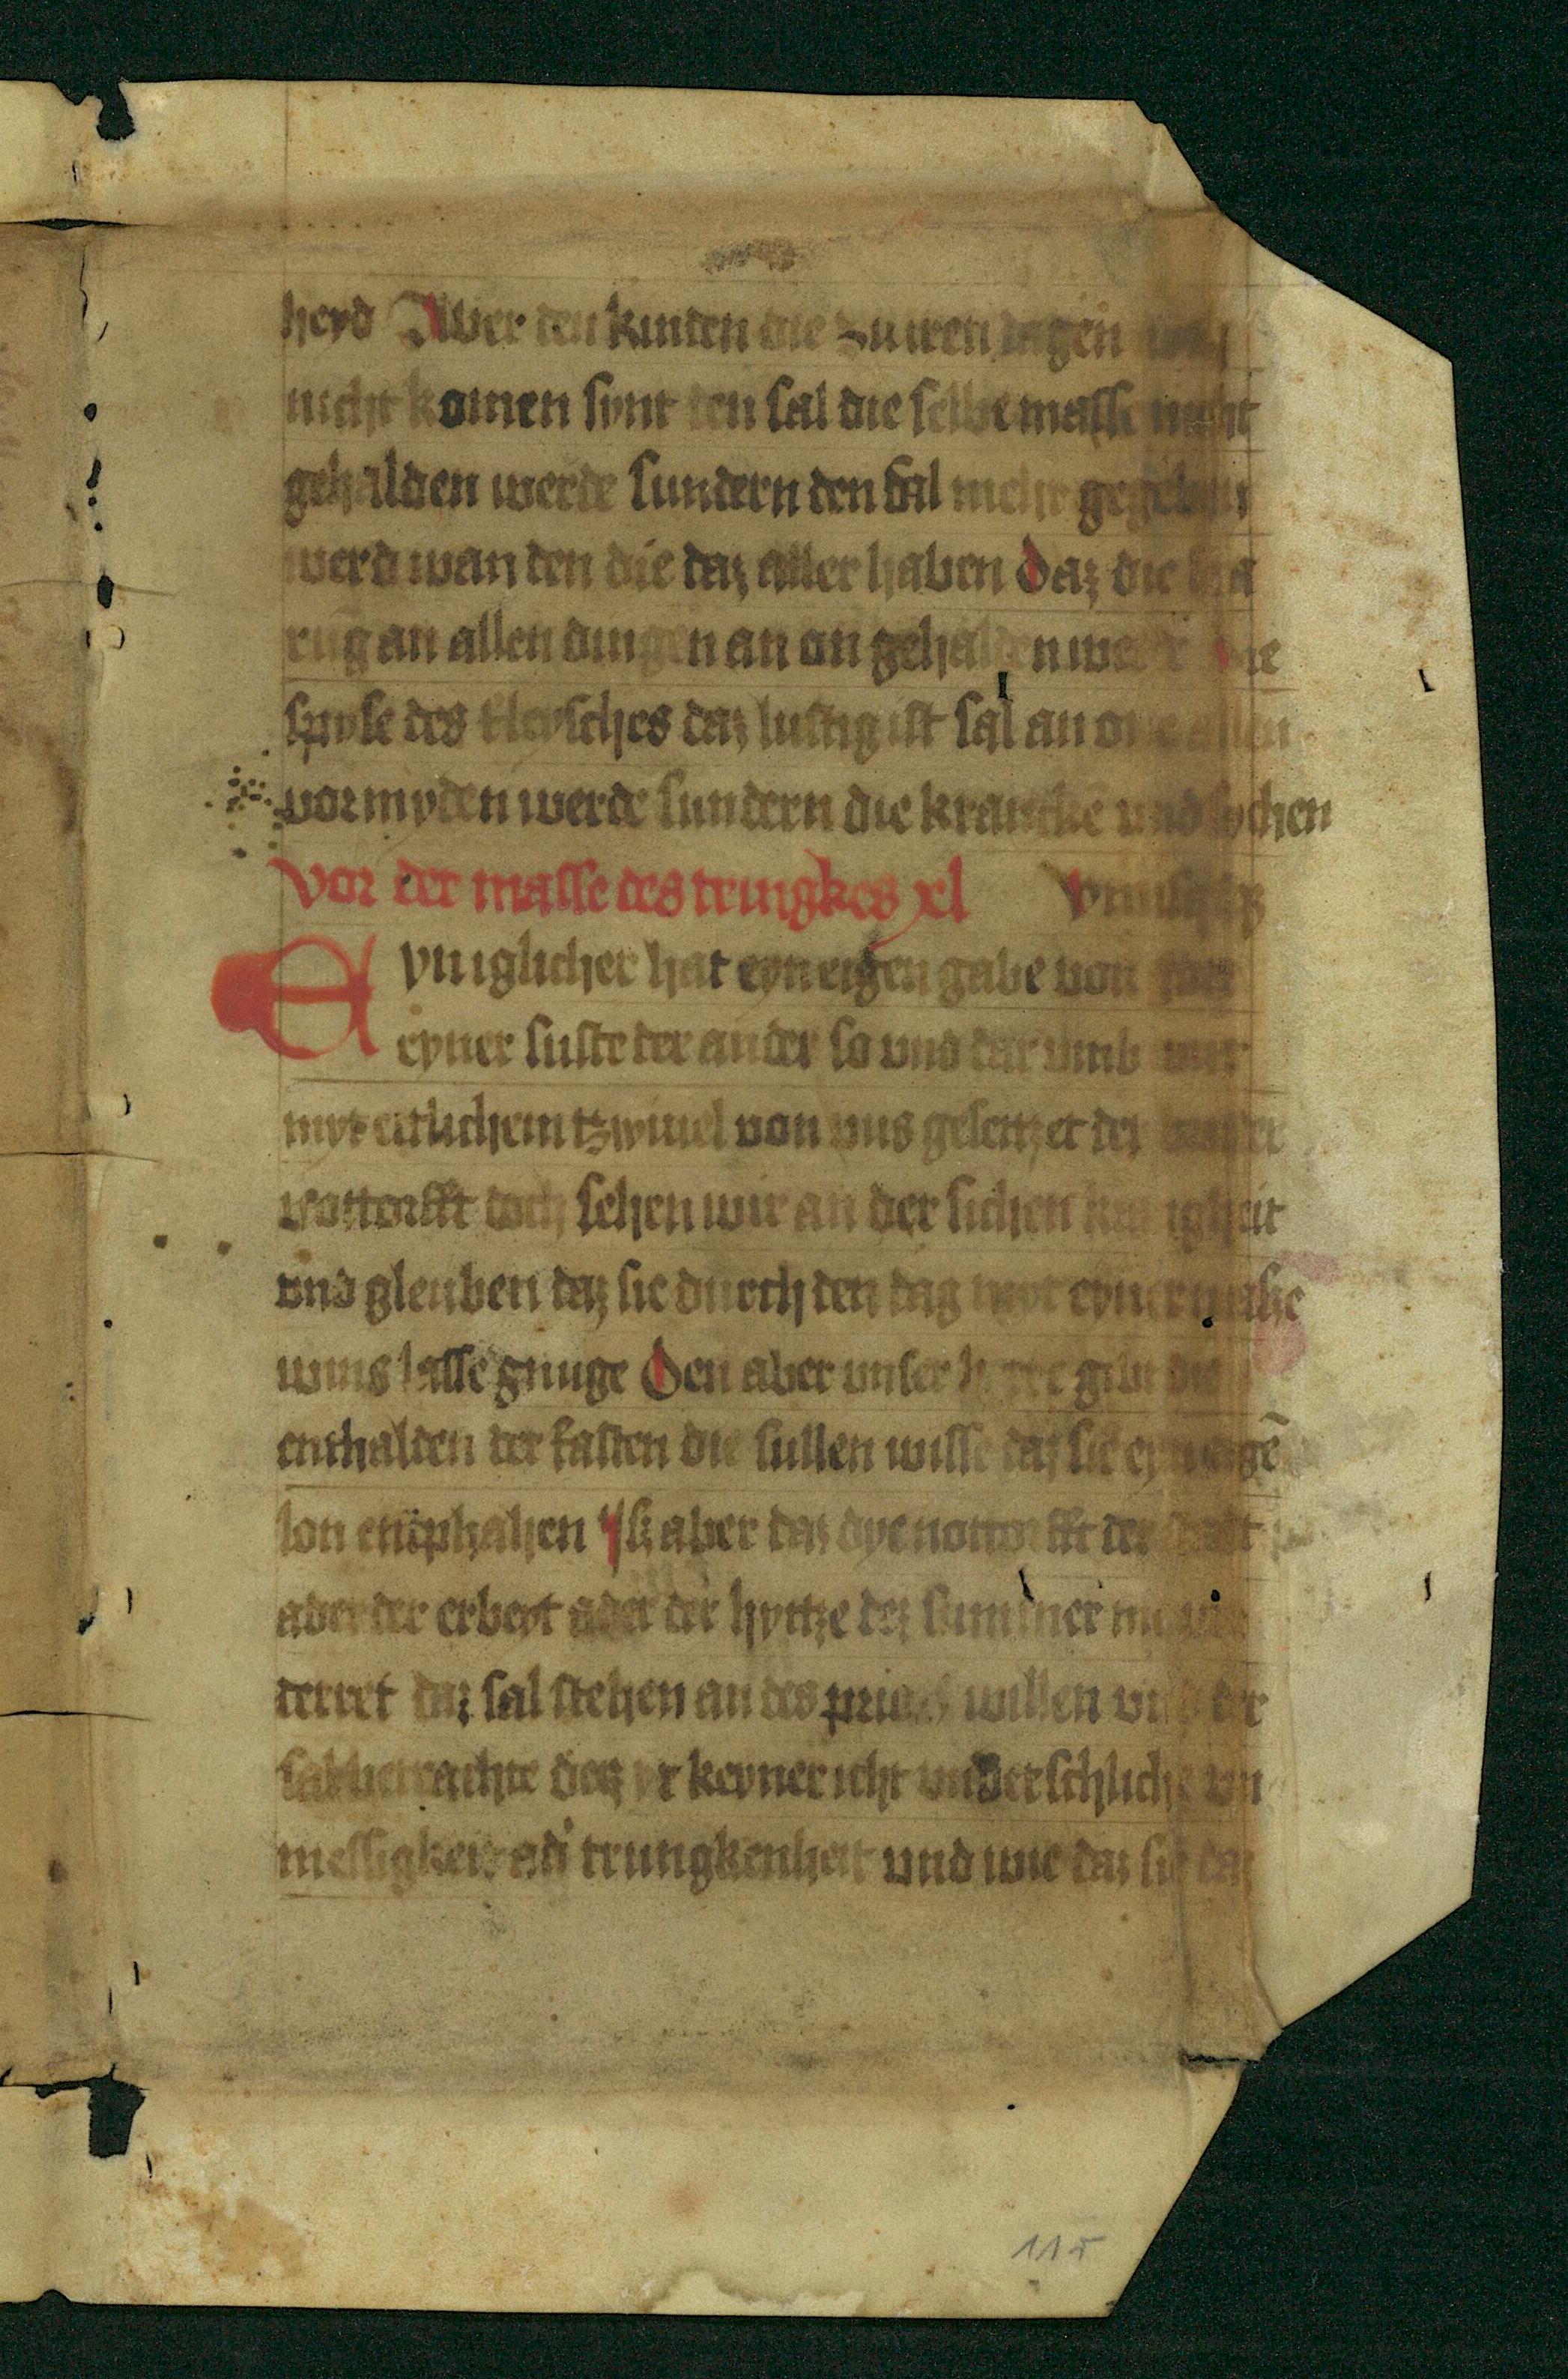 heyd Aber den kinden die zu iren dagen
nicht komen synt den sal die selbe masse nicht
gehalden werde sundern den sal mehr gegeben
werd wan den die daz aller haben daz die
rug an allen dingen an on gehalden werd die
spyse des fleysches daz lustig ist sal an one allen
vormyden werde sundern die krancke und sychen
vor der masse des tringkes xl
Eyn iglicher hat eyn eigen gabe von
eyner suste der ander so und dar umb
myt etlichem tzwiuel von uns gesetzet der
nottorfft doch sehen wir an der sichen
und gleuben daz sie durch den dag myt eyner
wins lasse gnuge Den aber unser herre gibt
enthalden der fasten die sullen wisse daz sie eyn eigē
lon entphahen Jsz aber daz dye nottorfft der stadt
ader der erbeyt ader der hyttze dez summer
derret daz sal stehen an des priors willen und der
sal betrachte daz yr keyner icht underschliche un
messigkeit ad' trungkenheit und wie daz sie daz
115